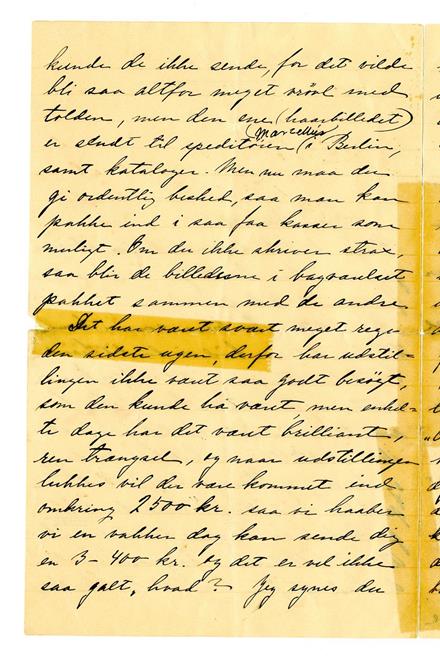 kunde de ikke sende, for det vilde
bli saa altfor meget vrøvl med
tolden, men den ene (haarbilledet)
er sendt til speditøren (Marcellus) i Berlin,
samt kataloger. Men nu maa du
gi ordentlig besked, saa man kan
pakke ind i saa faa kasser som
muligt. Om du ikke skriver strax,
saa blir de billederne i bagvaulset
pakket sammen med de andre.
Det har været svært meget regn
den sidste ugen, derfor har udstil-
lingen ikke vært saa godt besøgt,
som den kunde ha været, men enkel-
te dage har det været brilliant,
ren trængsel, og naar udstillingen
lukkes vil der være kommet ind
omkring 2500 kr. saa vi haaber
vi en vakker dag kan sende dig
en 3-400 kr. og det er vel ikke
saa galt, hvad? Jeg synes du